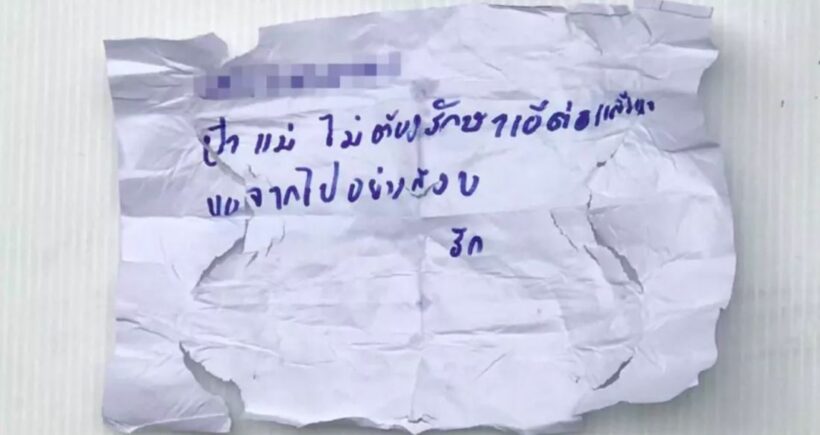 ป๋า แม่ ไม่ต้องรักษาเอ๋ต่อแล้วนะ
ขอจากไปอย่างสงบ
รัก